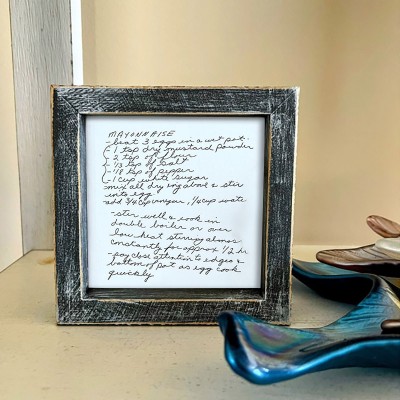 MAYONNAISE
- beat 3 eggs in a wet pot.
( 1 tsp dry mustard powder
( 2 tsp of flour
- 1/3 tsp of salt
- 1/8 tsp of pepper
( - 1 cup white sugar
- mix all dry ing above & stir
into egg
- add 3/4 cup vinegar, 1/4 cup water
- stir well & cook in
double boiler or over
low heat stirring almost
constantly for approx 1/2 hr
- pay close attention to edges &
bottom of pot as egg cook
quickly